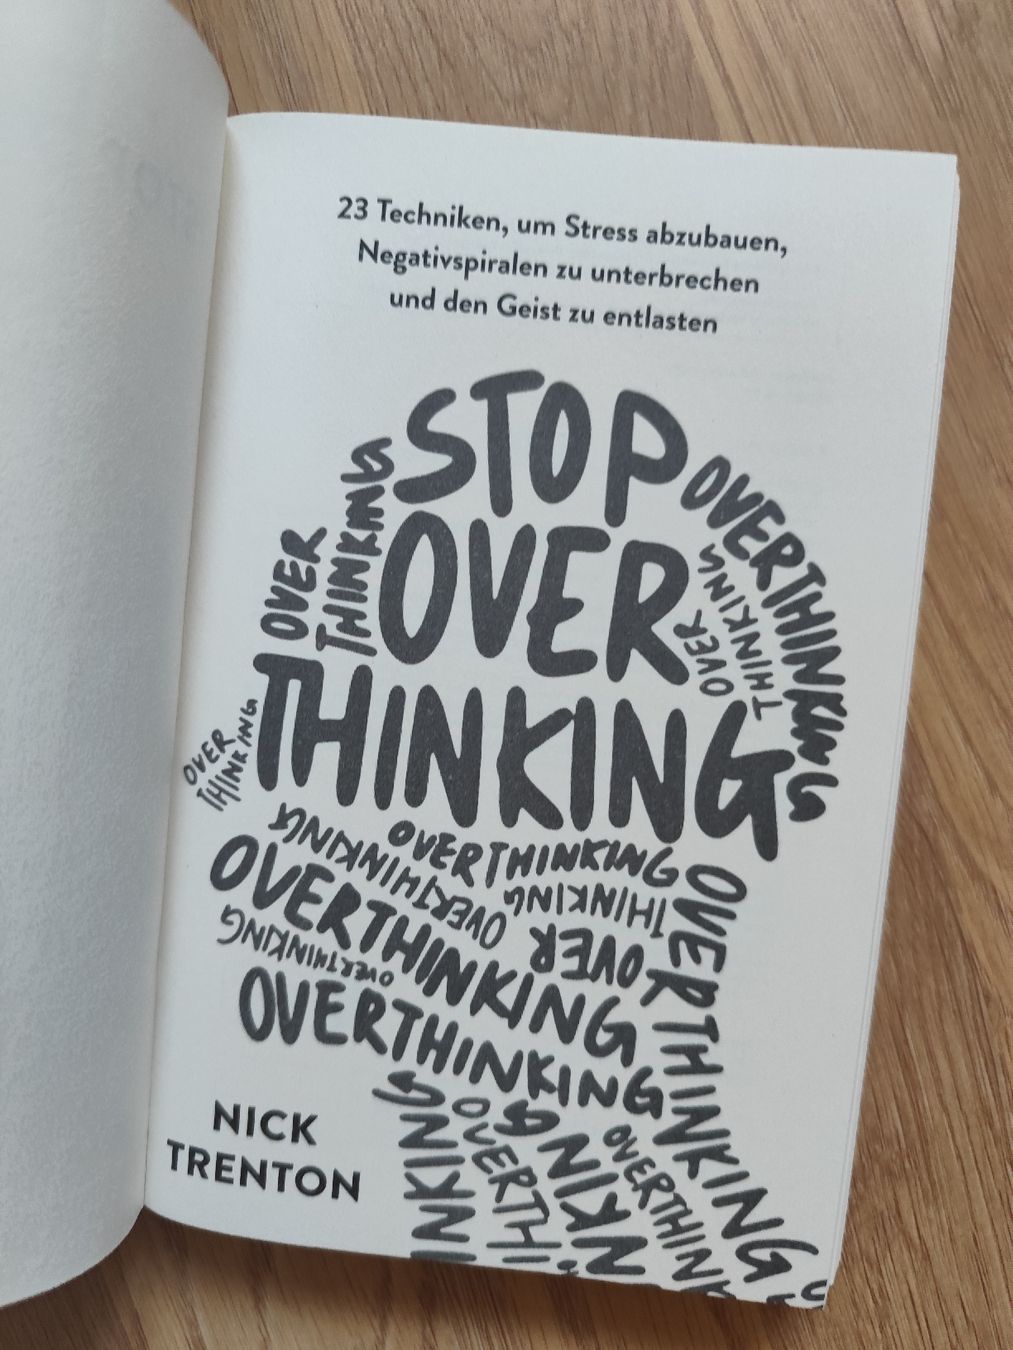 23 Techniken, um Stress abzubauen,
Negativspiralen zu unterbrechen
und den Geist zu entlasten
STOP
OVER
THINKING
OVER
THINKING
OVERTHINKING
OVER
THINKING
OVER
THINKING
OVERTHINKING
OVERTHINKING
THINKING
OVER
OVERTHINKING
OVERTHINKING
OVERTHINKING
OVERTHINKING
NKING
OVERTHI
NKING
OVERTHINK
NICK
TRENTON